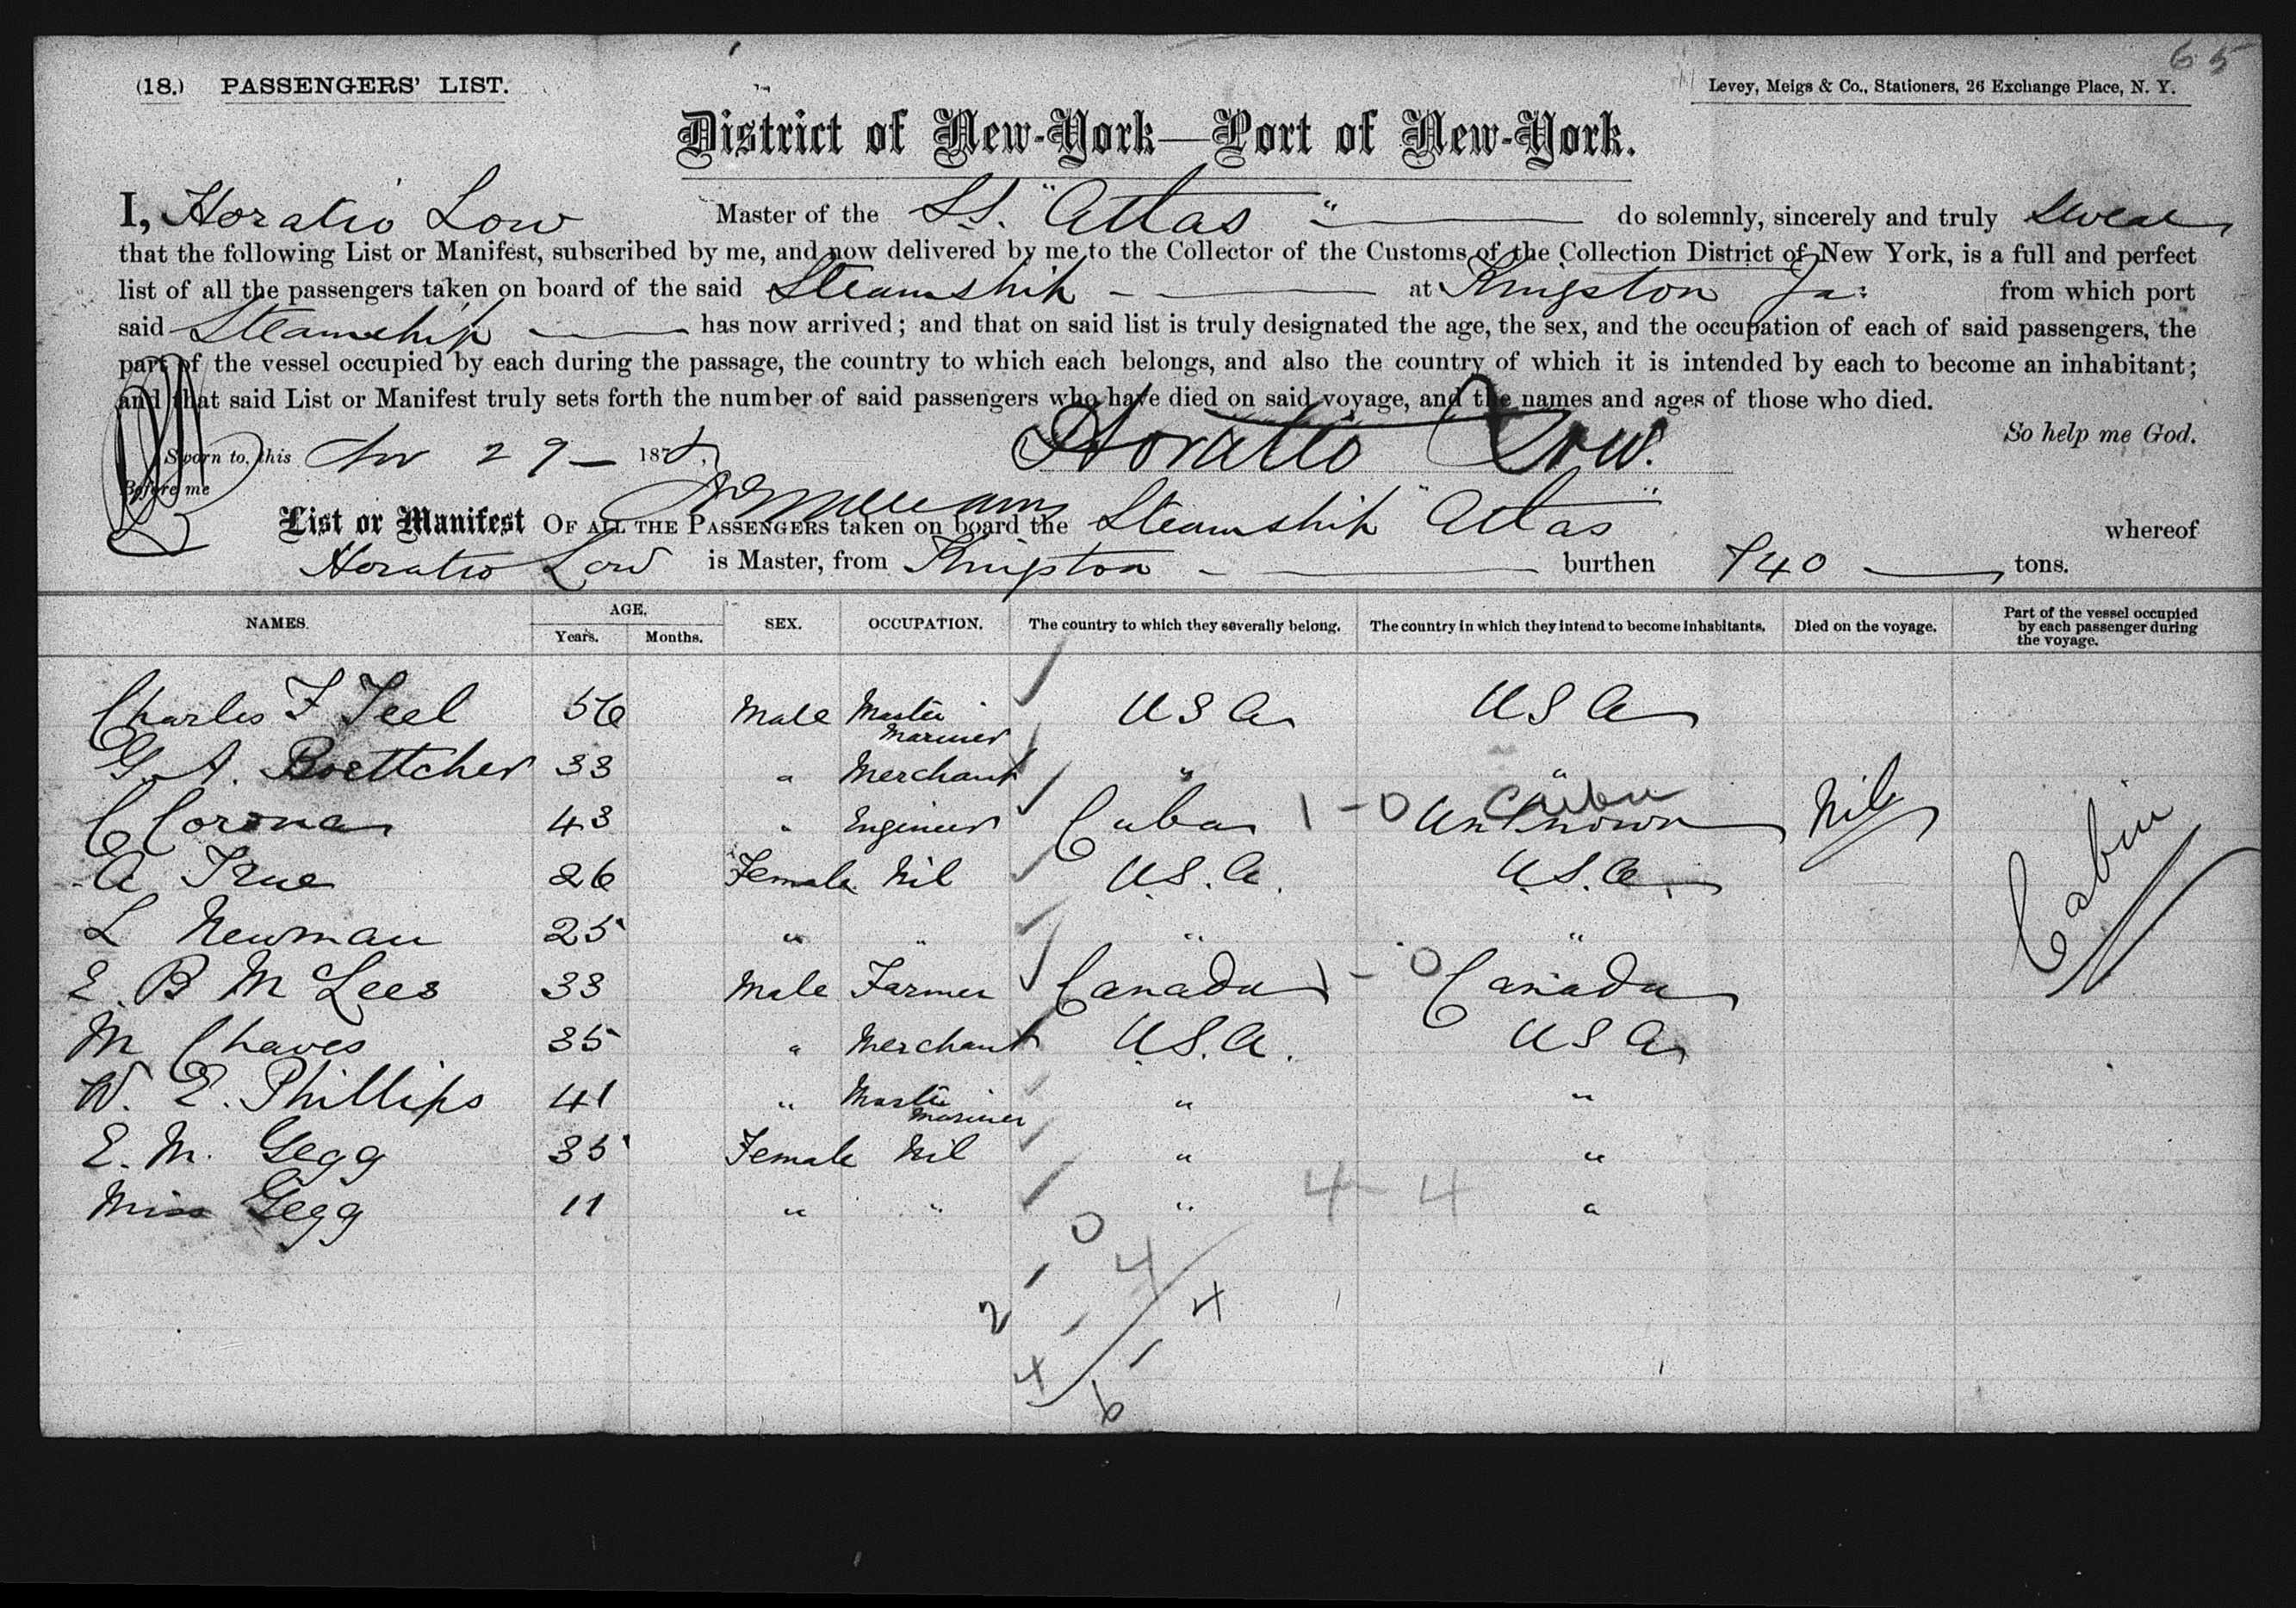 65
(18.) PASSENGERS' LIST.
Levey, Meigs & Co., Stationers, 26 Exchange Place, N. Y.
District of New-York—Port of New-York.
I, Horatio Low Master of the S.S. "Atlas" do solemnly, sincerely and truly swear
that the following List or Manifest, subscribed by me, and now delivered by me to the Collector of the Customs of the Collection District of New York, is a full and perfect
list of all the passengers taken on board of the said Steamship at Kingston Ja: from which port
said Steamship has now arrived; and that on said list is truly designated the age, the sex, and the occupation of each of said passengers, the
part of the vessel occupied by each during the passage, the country to which each belongs, and also the country of which it is intended by each to become an inhabitant;
and that said List or Manifest truly sets forth the number of said passengers who have died on said voyage, and the names and ages of those who died.
So help me God.
Sworn to, this Nov 29 187 Horatio Low.
Before me
List or Manifest OF ALL THE PASSENGERS taken on board the Steamship "Atlas" whereof
Horatio Low is Master, from Kingston burthen 940 tons.
NAMES. AGE. Years. Months. SEX. OCCUPATION. The country to which they severally belong. The country in which they intend to become inhabitants. Died on the voyage. Part of the vessel occupied by each passenger during the voyage.
Charles F Teel 56 Male Master Mariner U S A U S A
G. A. Boettcher 33 " Merchant " "
C Corona 43 " Engineer Cuba 1-0 Unknown Cuba Nil Cabin
A True 26 Female Nil U.S.A. U.S.A.
L Newman 25 " " " "
E. B McLees 33 Male Farmer Canada 1-0 Canada
M Chaves 35 " Merchant U.S.A. U S A
W. E. Phillips 41 " Master Mariner " "
E. M. Gegg 35 Female Nil " "
Miss Gegg 11 " " " 4-4 "
0
1 4
2 1 4
4 1
6